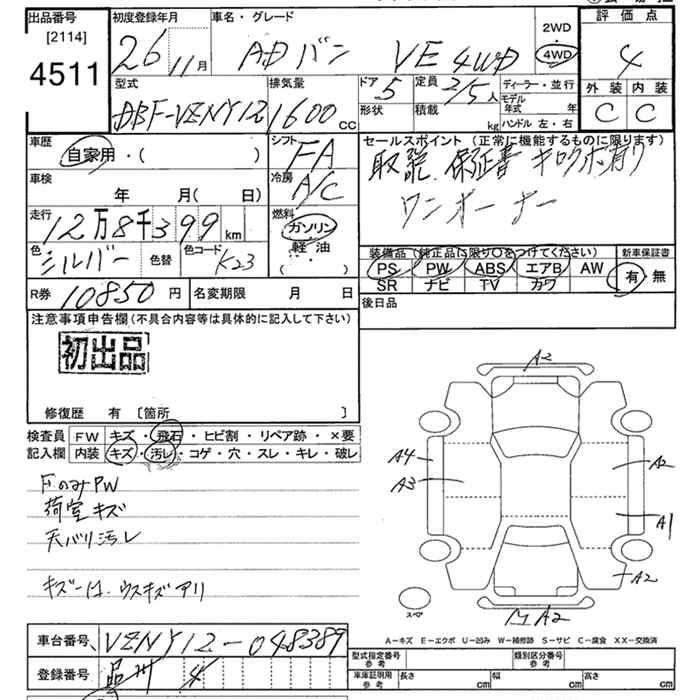 出品番号
[2114]
4511
初度登録年月
26 11月
車名・グレード
ADバン VE 4WD
2WD
4WD
評価点
4
外装 内装
C C
型式
DBF-VZNY12
排気量
1600 CC
ドア 5
形状
定員 2/5人
積載 kg
ディーラー・並行
モデル年式 年
ハンドル 左・右
車歴
自家用・( )
シフト FA
セールスポイント (正常に機能するものに限ります)
取説 保証書 キロクボ有り
ワンオーナー
車検
年 月( 日)
冷房 A/C
走行
12万8千399km
燃料
ガソリン
軽油
( )
色
シルバー
色替
色コード
K23
装備品 (純正品に限り○をつけてください)
PS PW ABS エアB AW
SR ナビ TV カワ
新車保証書
有・無
R券 10850円
名変期限 月 日
後日品
注意事項申告欄(不具合内容等は具体的に記入して下さい)
初出品
修復歴 有 [箇所 ]
検査員
記入欄
FW キズ・飛石・ヒビ割・リペア跡・×要
内装 キズ・汚レ・コゲ・穴・スレ・キレ・破レ
FのみPW
荷室キズ
天バリ汚レ
キズーは、ウスキズアリ
A2
A4
A3
A2
A1
A2
A2
スペア
A−キズ E−エクボ U−凹み W−補修跡 S−サビ C−腐食 XX−交換済
車台番号 VZNY12-048389
登録番号 品川 4
型式指定番号 参考
類別区分番号 参考
車庫証明用 参考
長さ cm
幅 cm
高さ cm